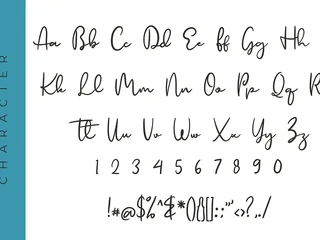 CHARACTER
Aa Bb Cc Dd Ee ff Gg Hh
Kk Ll Mm Nn Oo Pp Qq R
tt Uu Vv Ww Xx Yy Zz
1 2 3 4 5 6 7 8 9 0
!#@$%^&*(){}[]:;"'<>?,./